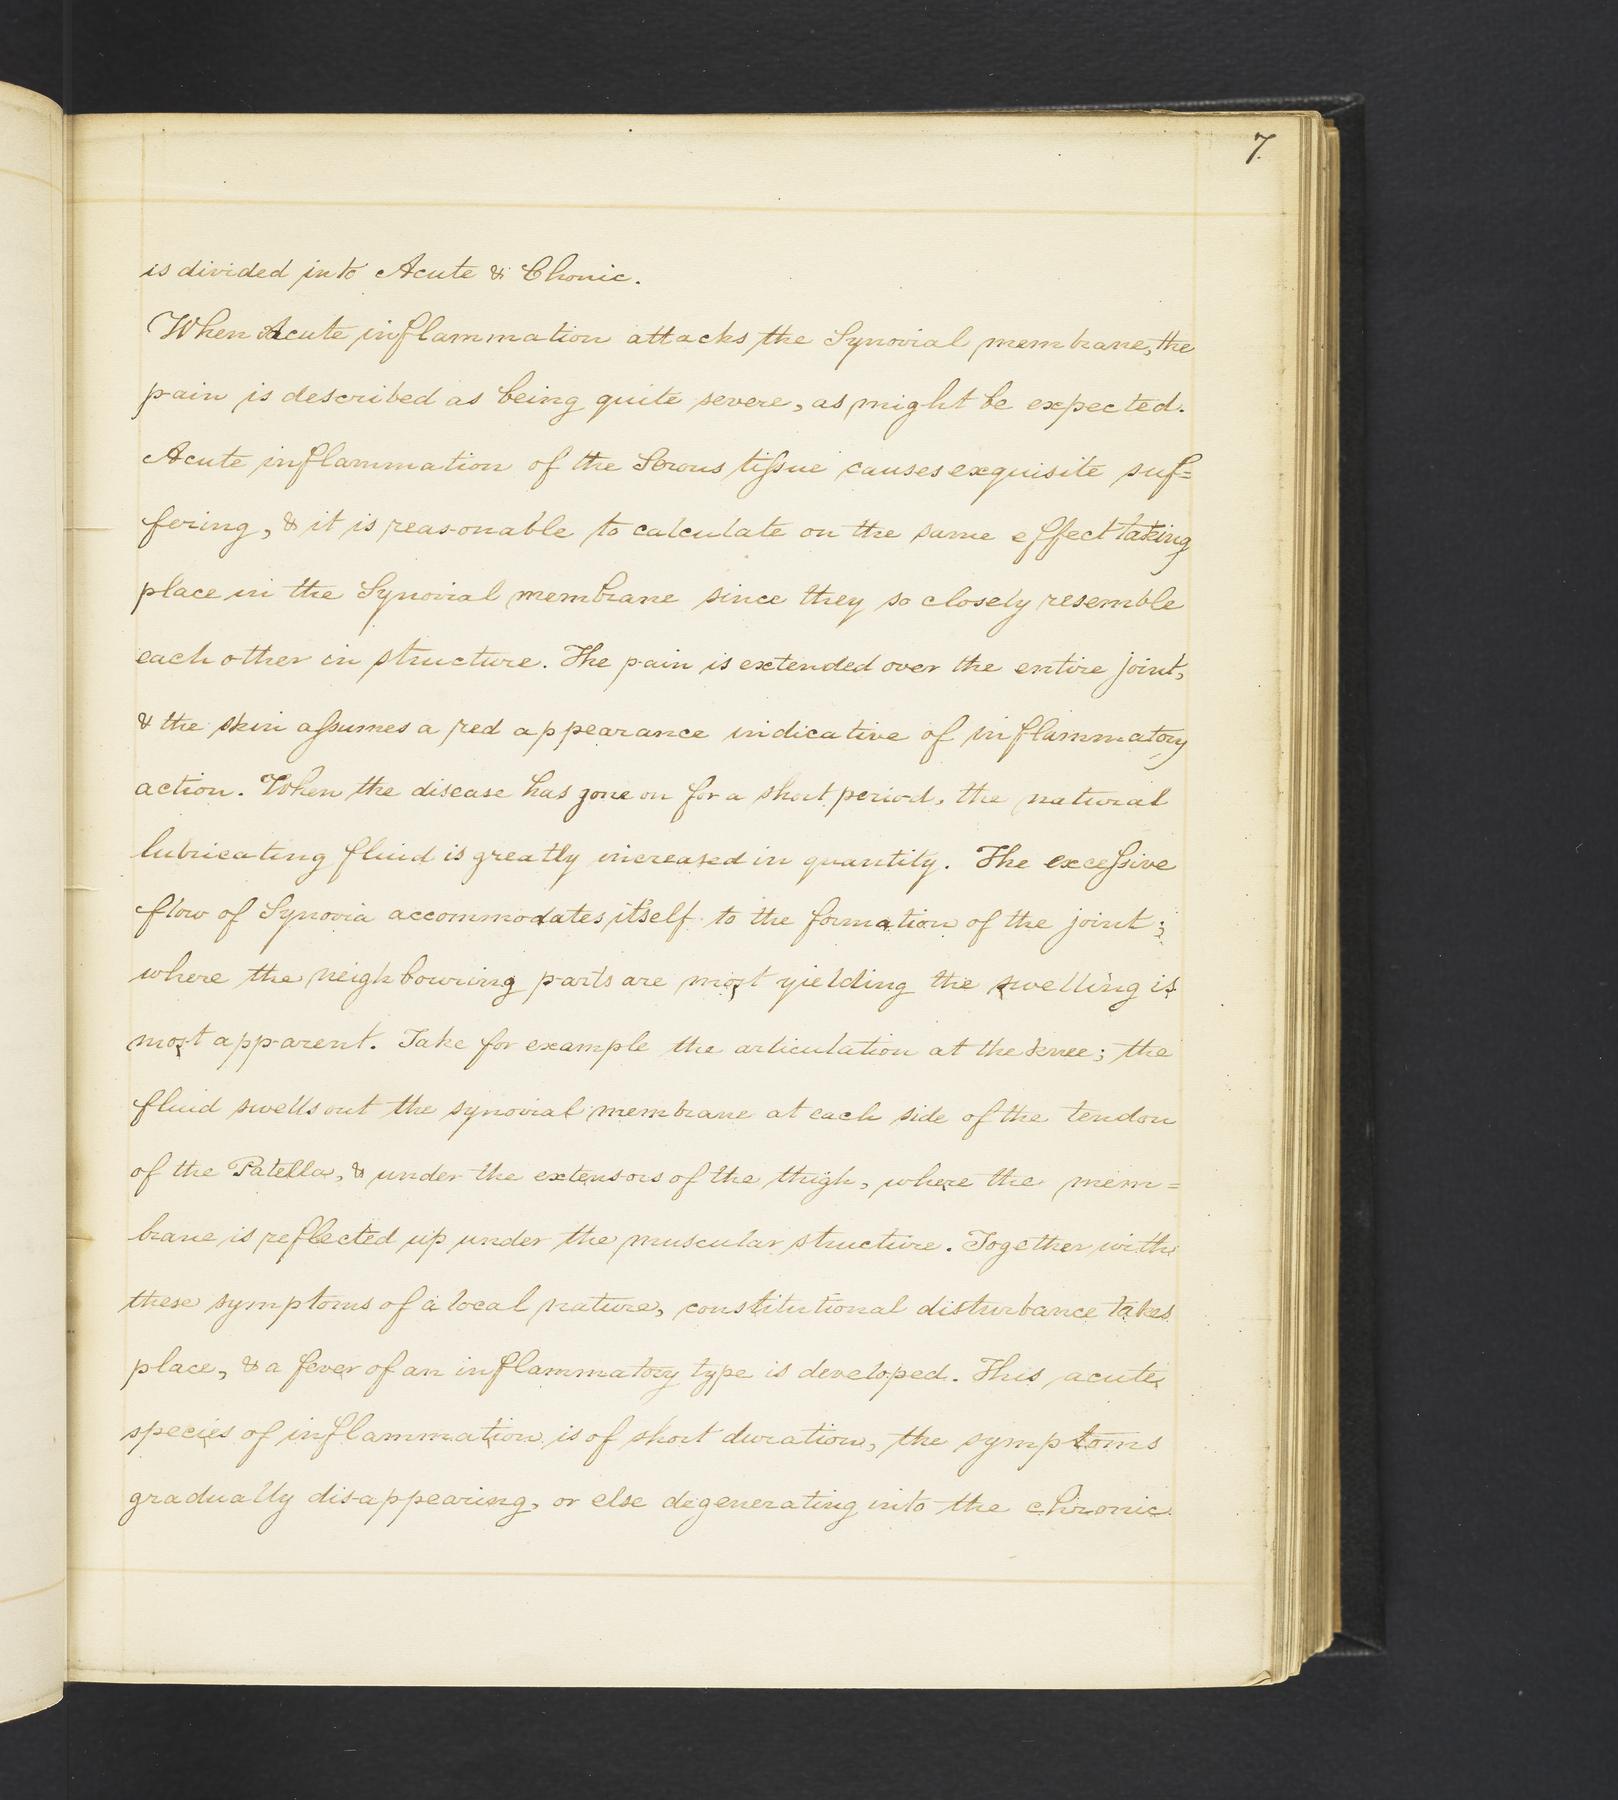 7
is divided into Acute & Chonic.
When Acute inflammation attacks the Synovial membrane, the
pain is described as being quite severe, as might be expected.
Acute inflammation of the Serous tissue causes exquisite suf=
fering, & it is reasonable to calculate on the same effect taking
place in the Synovial membrane since they so closely resemble
each other in structure. The pain is extended over the entire joint,
& the skin assumes a red appearance indicative of inflammatory
action. When the disease has gone on for a short period, the natural
lubricating fluid is greatly increased in quantity. The excessive
flow of Synovia accommodates itself to the formation of the joint;
where the neighbouring parts are most yielding the swelling is
most apparent. Take for example the articulation at the knee; the
fluid swells out the synovial membrane at each side of the tendon
of the Patella, & under the extensors of the thigh, where the mem=
brane is reflected up under the muscular structure. Together with
these symptoms of a local nature, constitutional disturbance takes
place, & a fever of an inflammatory type is developed. This acute
species of inflammation is of short duration, the symptoms
gradually disappearing, or else degenerating into the chronic